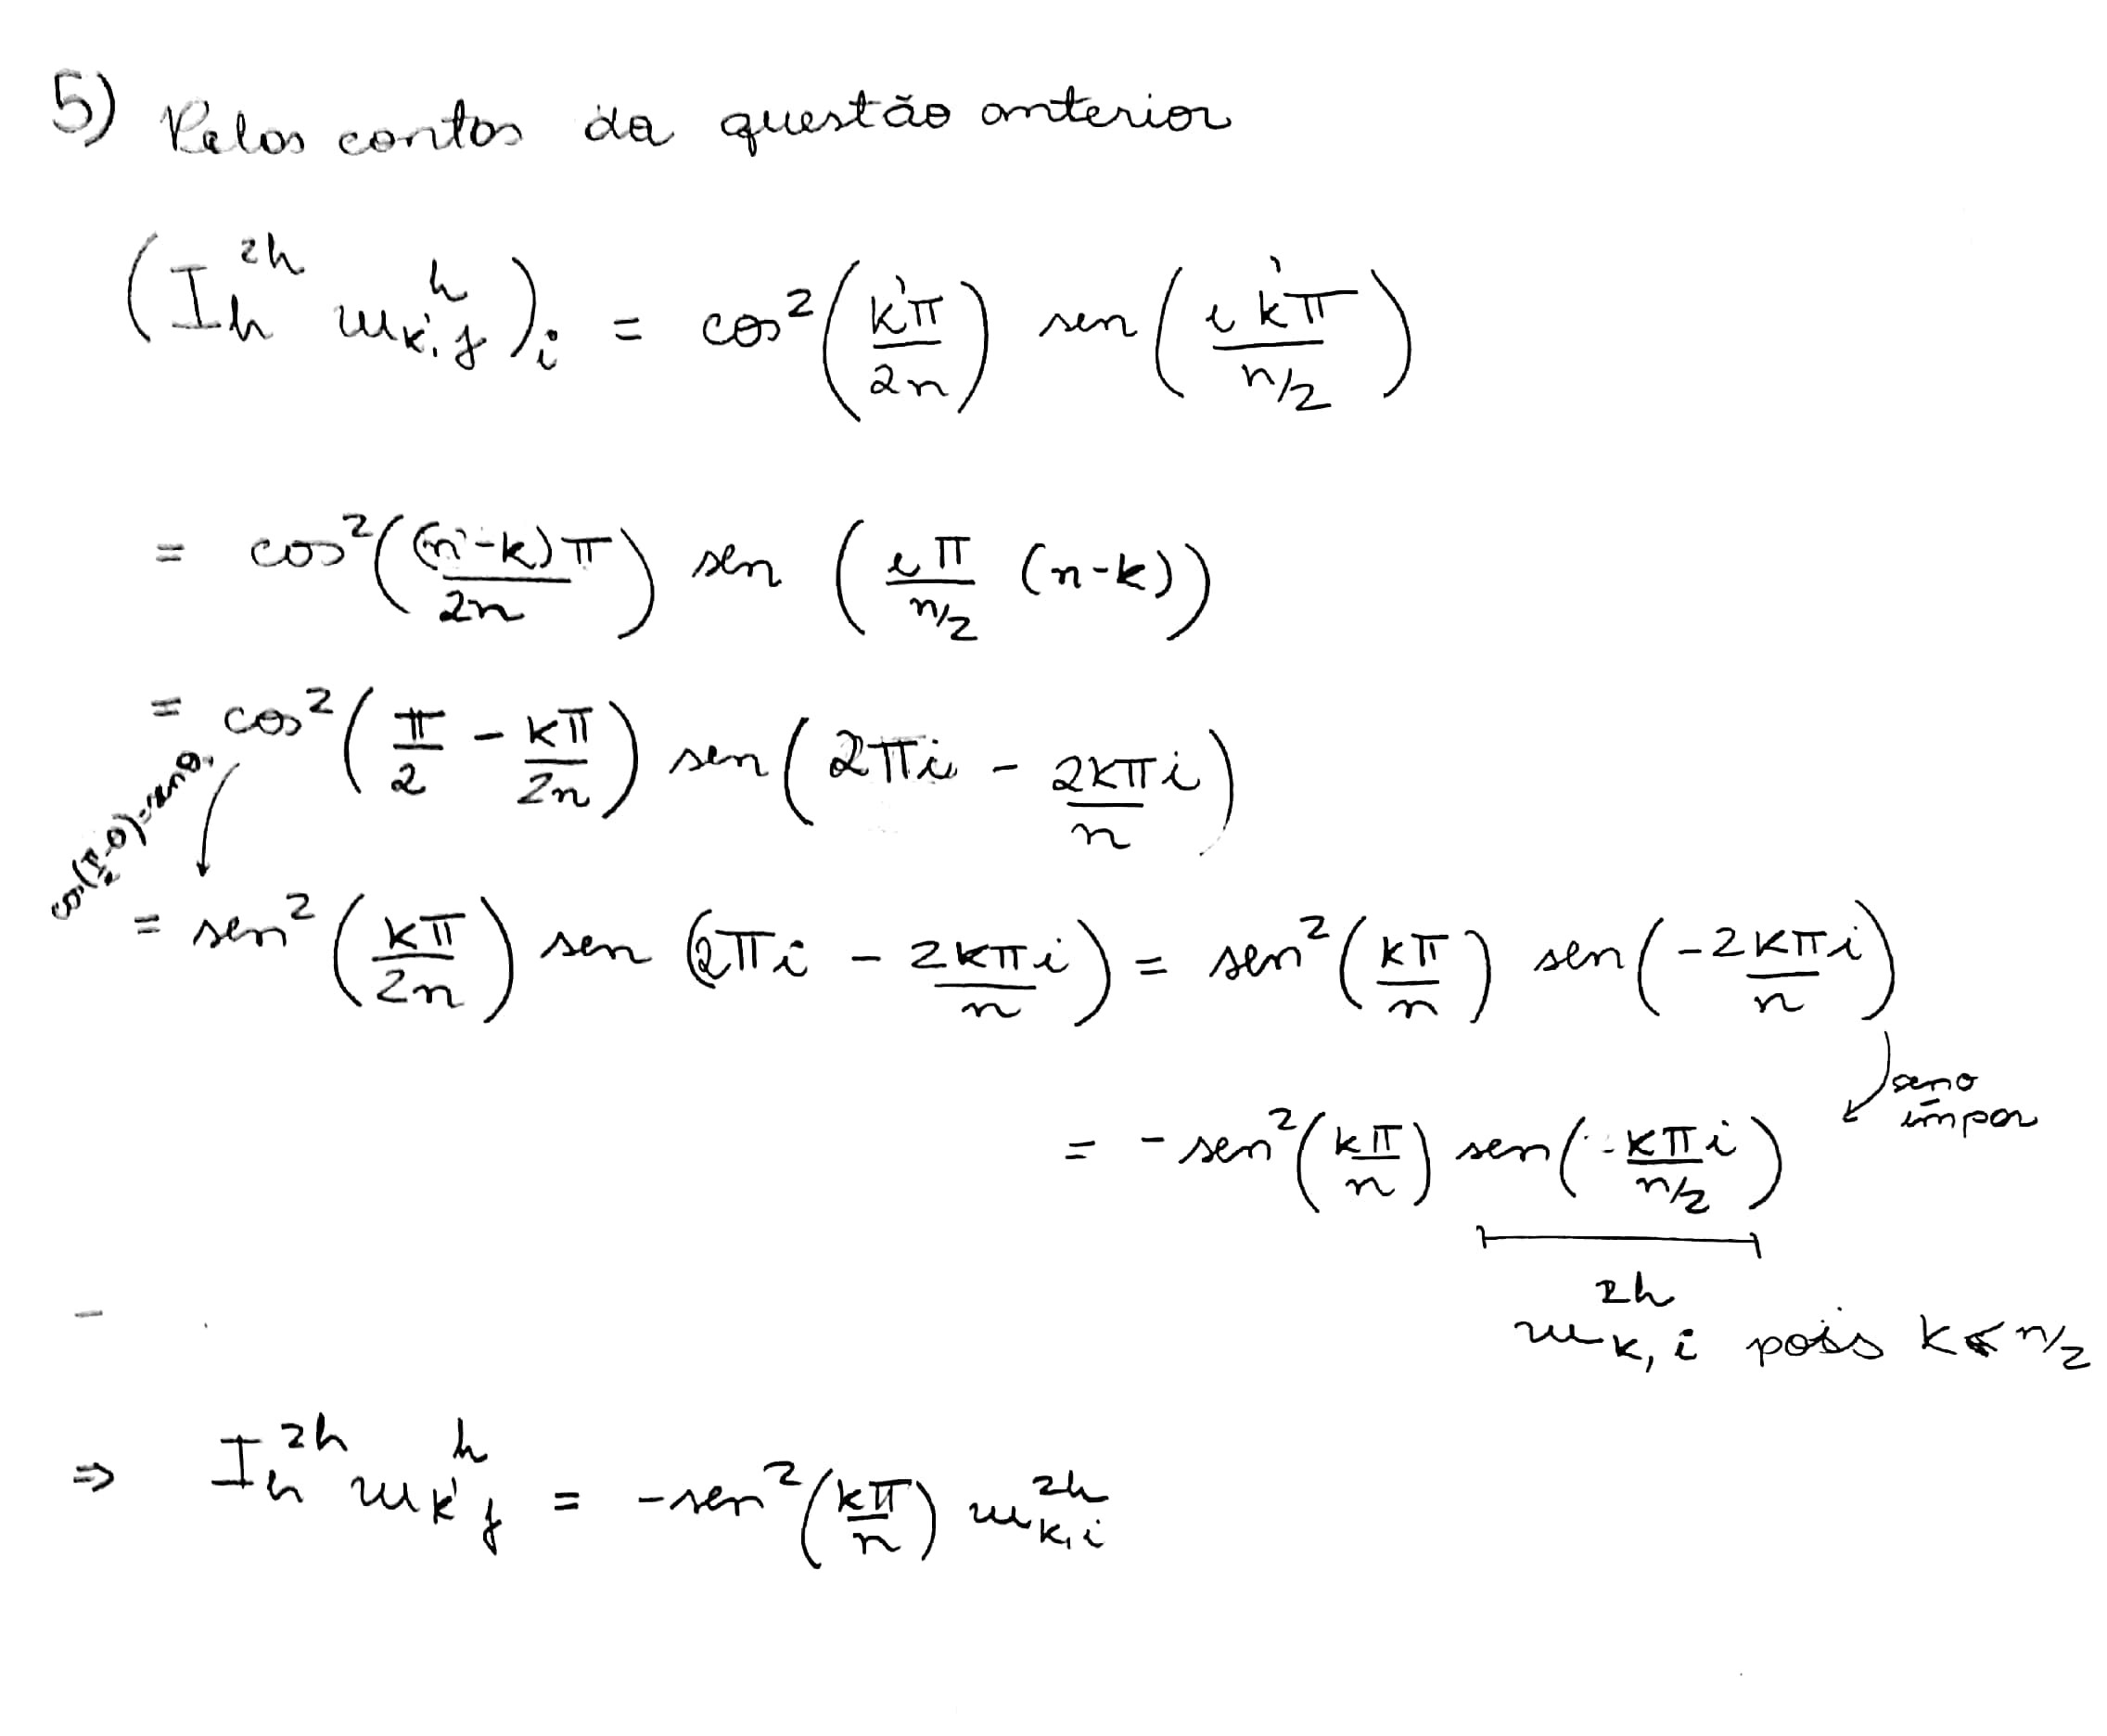 5) Pelas contas da questão anterior
(I_h^{2h} w_{k',j}^h)_i = cos²(k'π/2n) sen(i k'π / n/2)
= cos²((n-k)π/2n) sen(iπ/n/2 (n-k))
= cos²(π/2 - kπ/2n) sen(2πi - 2kπi/n)
cos(π/2-θ)=senθ
= sen²(kπ/2n) sen(2πi - 2kπi/n) = sen²(kπ/n) sen(-2kπi/n)
seno
ímpar
= -sen²(kπ/n) sen(kπi / n/2)
w_{k,i}^{2h} pois k < n/2
⇒ I_h^{2h} w_{k'j}^h = -sen²(kπ/n) w_{k,i}^{2h}